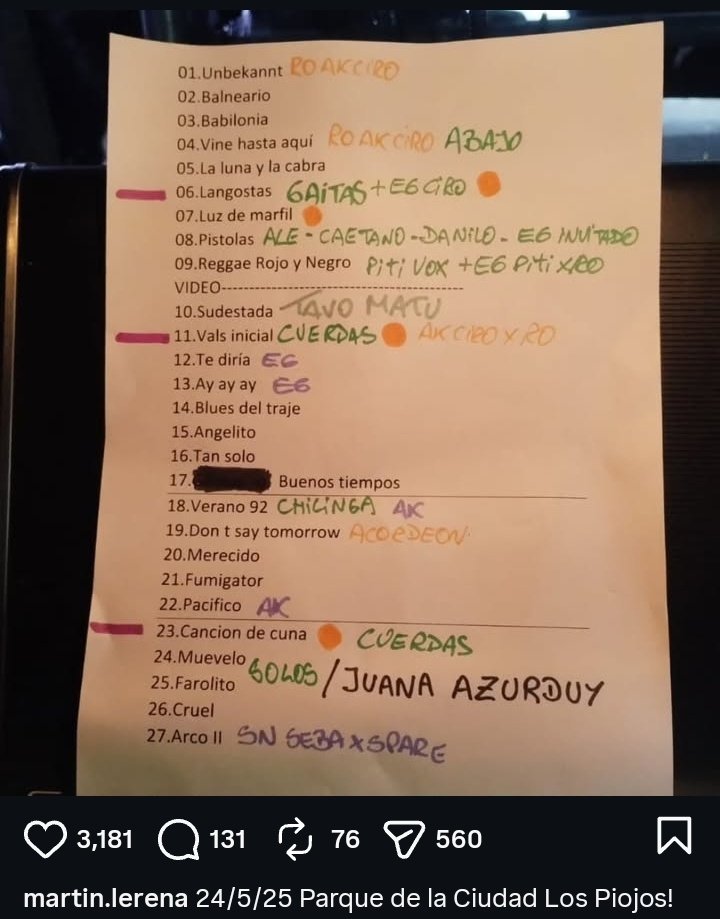 01.Unbekannt RO AK CIRO
02.Balneario
03.Babilonia
04.Vine hasta aquí RO AK CIRO ABAJO
05.La luna y la cabra
06.Langostas GAITAS + EG CIRO
07.Luz de marfil
08.Pistolas ALE - CAETANO - DANILO - EG INVITADO
09.Reggae Rojo y Negro PITI VOX + EG PITI X RO
VIDEO--------------------------------------------
10.Sudestada TAVO MATU
11.Vals inicial CUERDAS AK CIRO X RO
12.Te diría EG
13.Ay ay ay EG
14.Blues del traje
15.Angelito
16.Tan solo
17. Buenos tiempos
18.Verano 92 CHILINGA AK
19.Don t say tomorrow ACORDEON
20.Merecido
21.Fumigator
22.Pacifico AK
23.Cancion de cuna CUERDAS
24.Muevelo
25.Farolito SOLOS / JUANA AZURDUY
26.Cruel
27.Arco II SN SEBA X SPARE
3,181 131 76 560
martin.lerena 24/5/25 Parque de la Ciudad Los Piojos!